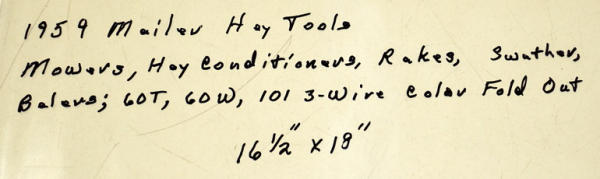 1959 Mailer Hay Tools
Mowers, Hay Conditioners, Rakes, Swather,
Balers; 60T, 60W, 101 3-Wire Color Fold Out
16 1/2" x 18"